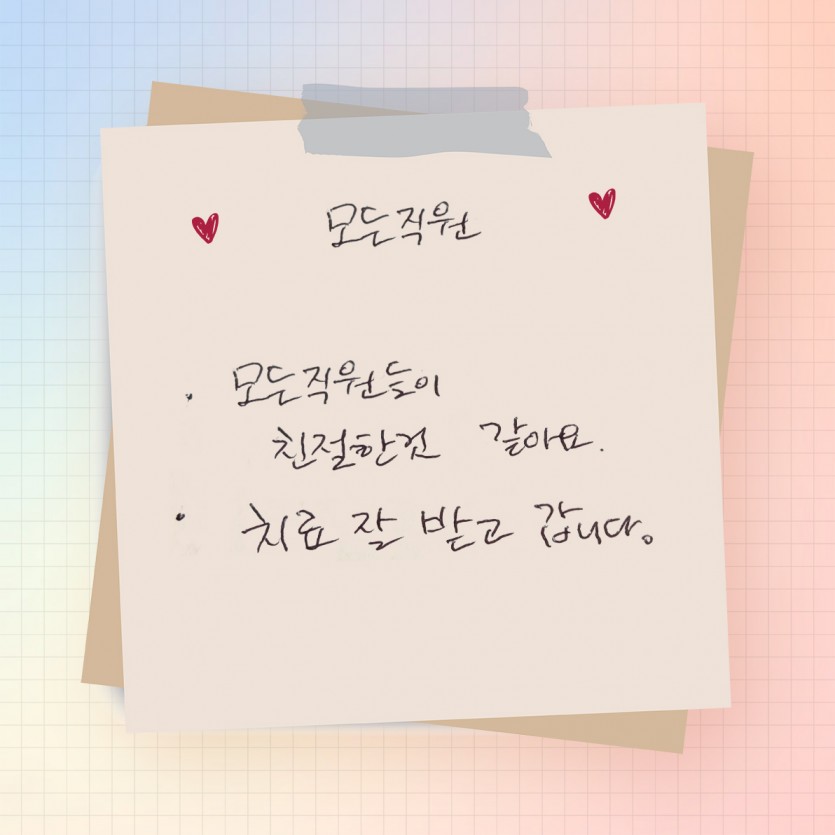 모든직원
· 모든직원들이
친절한것 같아요.
· 치료 잘 받고 갑니다。